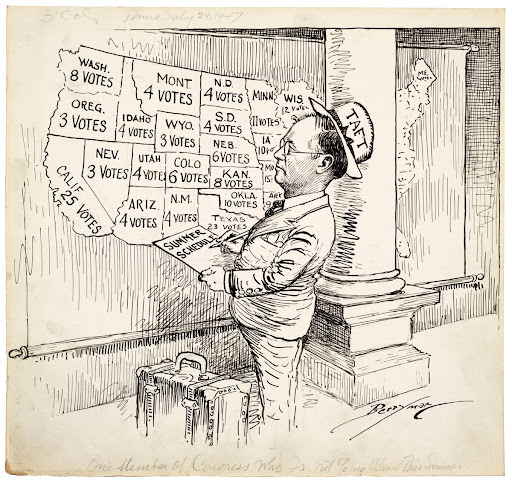 3 Col. Thurs July 24, 1947
WASH.
8 VOTES
MONT.
4 VOTES
N.D.
4 VOTES
MINN
11 VOTES
WIS.
12 VOTES
ME.
OREG.
3 VOTES
IDAHO
4 VOTES
WYO.
3 VOTES
S.D.
4 VOTES
IA
10
NEB.
6 VOTES
NEV.
3 VOTES
UTAH
4 VOTES
COLO
6 VOTES
KAN.
8 VOTES
MO
15
CALIF
25 VOTES
ARIZ.
4 VOTES
N.M.
4 VOTES
OKLA.
10 VOTES
ARK
9
TEXAS
23 VOTES
TAFT
SUMMER
SCHEDULE
BERRYMAN
One Member of Congress Who Is Not Going Home This Summer